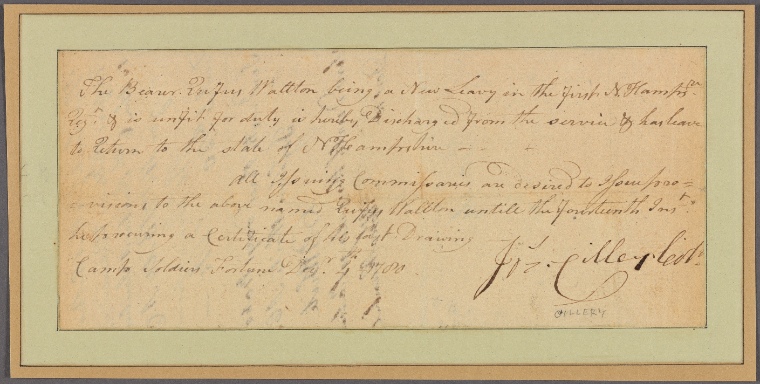 The Bearer Rufus Wallton being a New Leavy in the first N. Hampsr.
Regt. & is unfit for duty is hereby Discharged from the service & has leave
to Return to the state of N Hampshire
All Issuing Commissaries are desired to Issue pro=
=visions to the above named Rufus Wallton untill the fourteenth Inst.
he procuring a Certificate of his last Drawing
Camp Soldiers Fortune Decr. 1780
Jos. Cilley Colo.
CILLERY